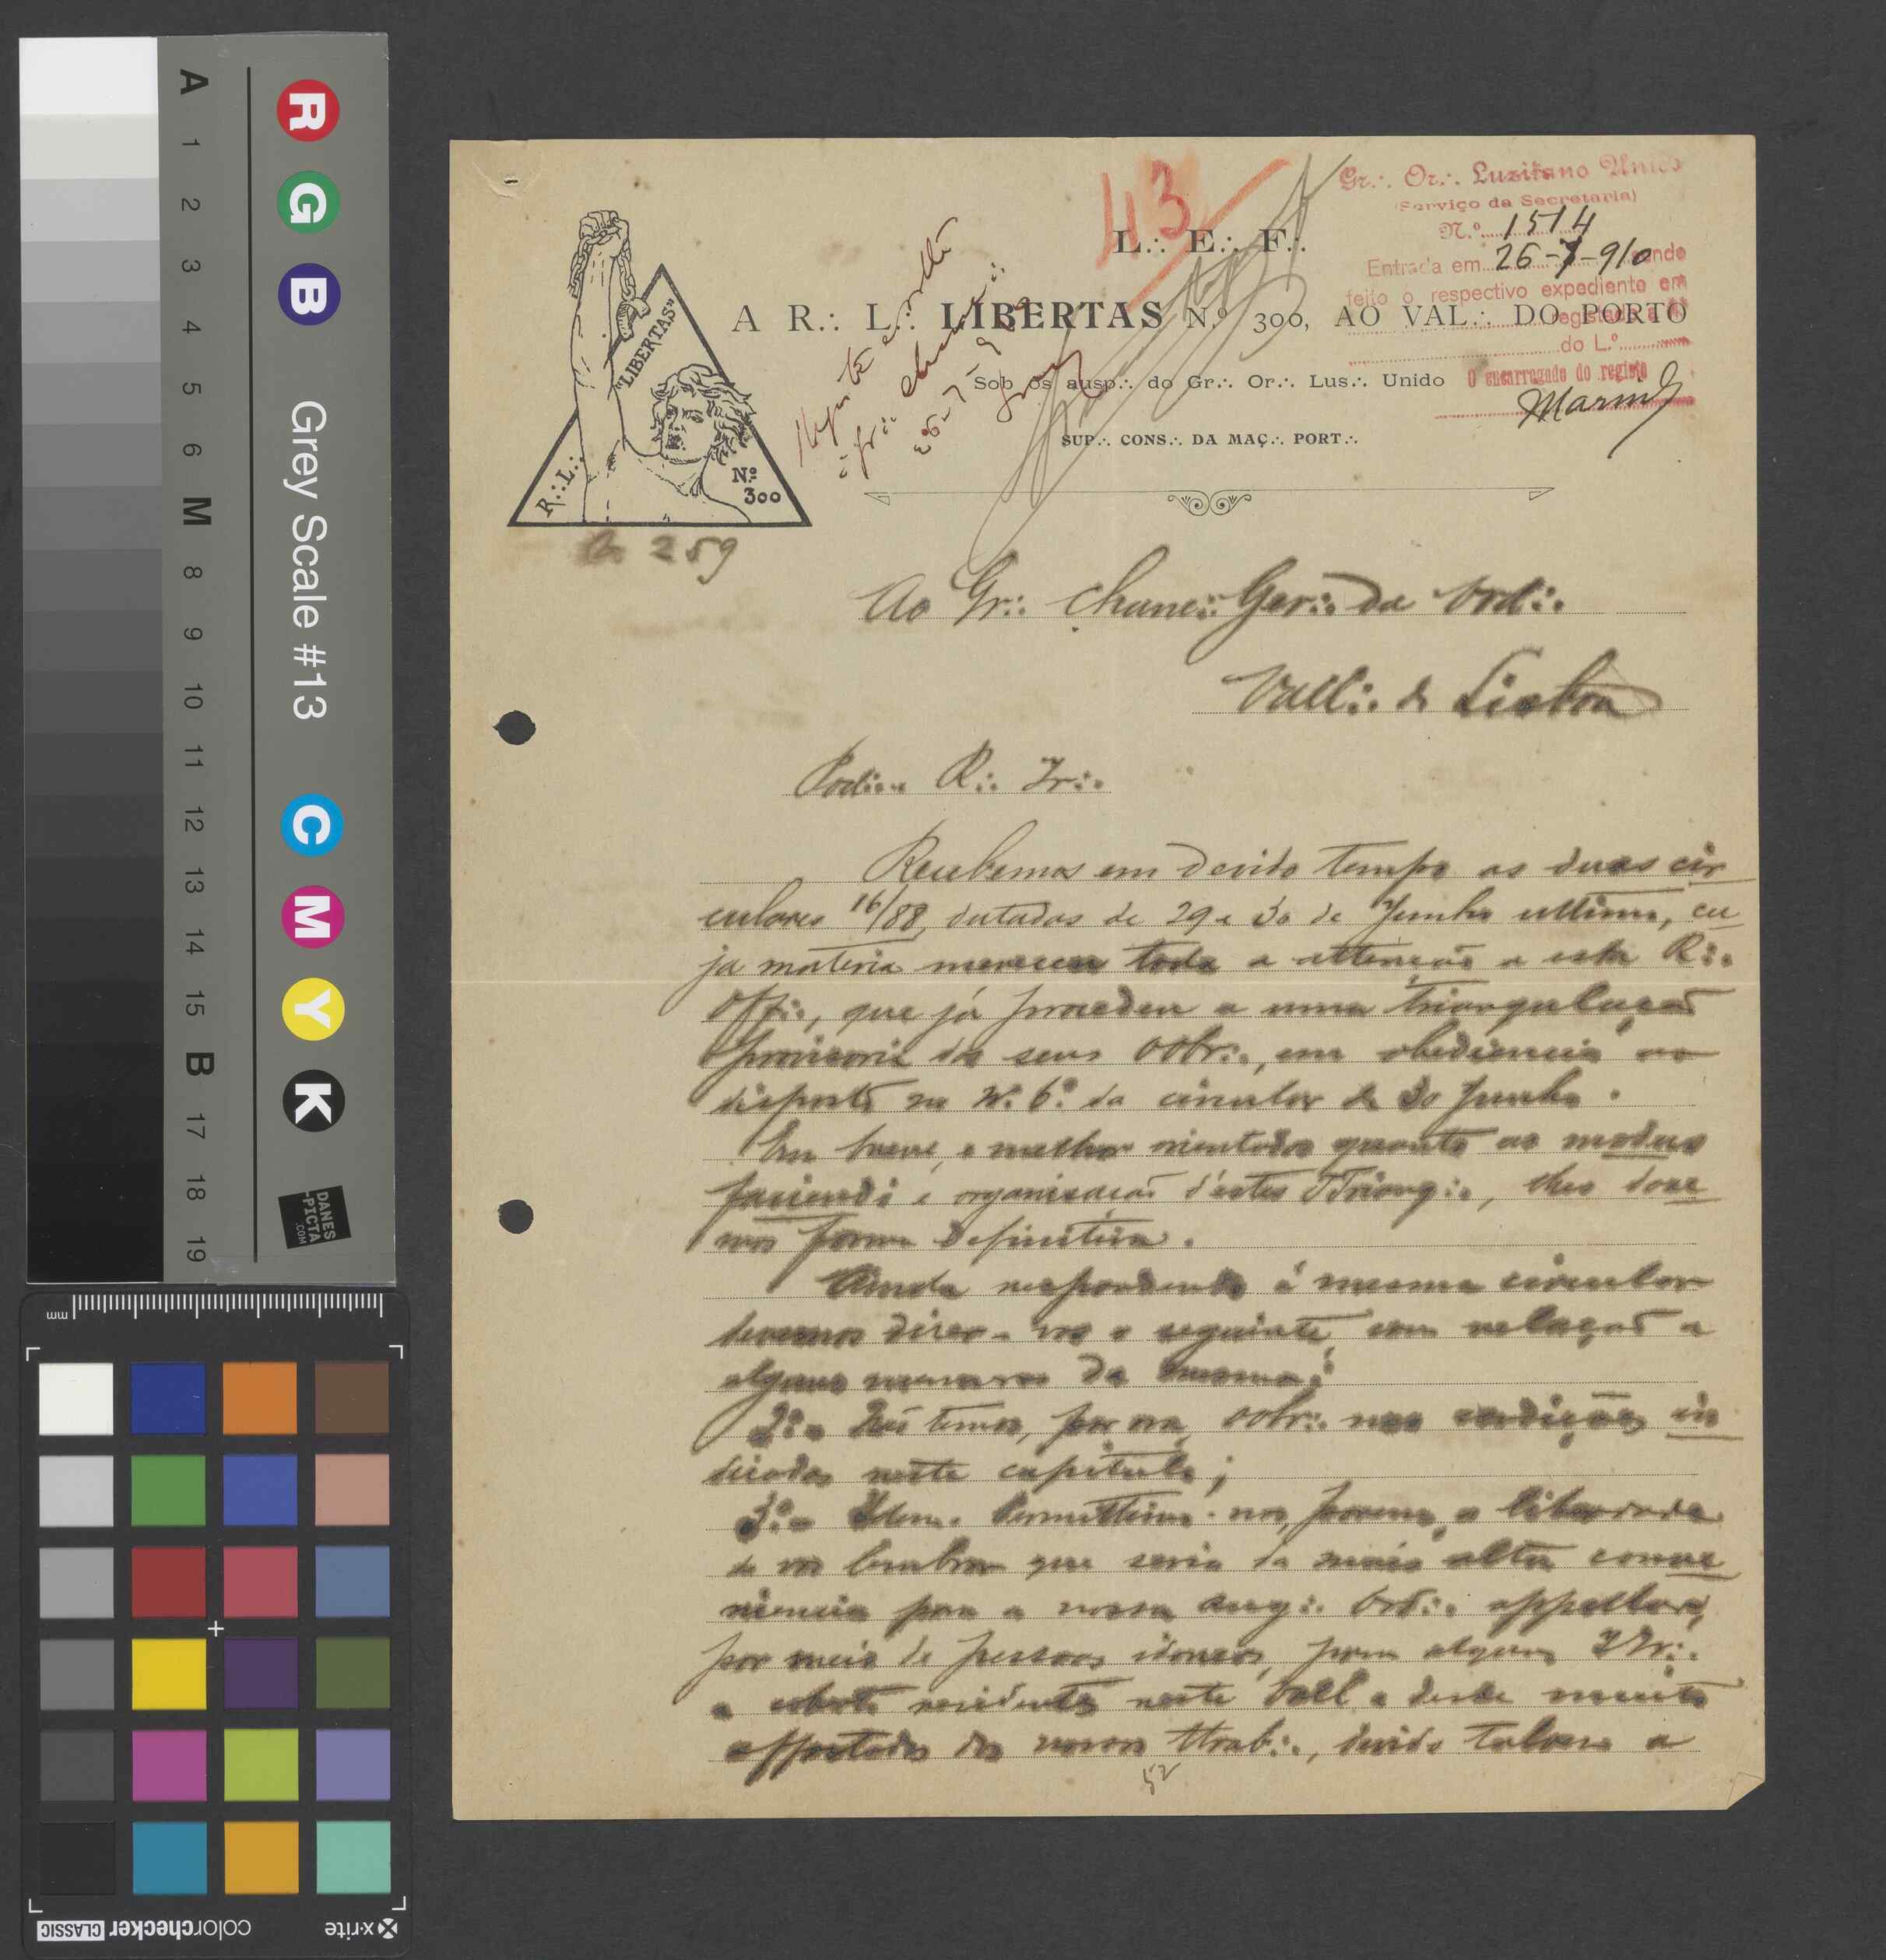 43
L∴ E∴ F∴
A R∴ L∴ LIBERTAS N.º 300, AO VAL∴ DO PORTO
Sob os ausp∴ do Gr∴ Or∴ Lus∴ Unido
SUP∴ CONS∴ DA MAÇ∴ PORT∴
Gr∴ Or∴ Luzitano Unido
(Serviço da Secretaria)
N.º 1514
Entrada em 26-7-910 sendo
feito o respectivo expediente em
registado a
do L.º
O encarregado do registo
"LIBERTAS"
R∴L∴
Nº
300
259
Ao Gr∴ Chanc∴ Ger∴ da Ord∴
Vall∴ de Lisboa
Pod∴ R∴ Ir∴
Recebemos em devido tempo as duas cir
culares 16/88, datadas de 29 e 30 de Junho ultimo, cu
ja materia mereceu toda a attenção a esta R∴
Off∴, que já procedeu a uma triangulação
provisoria dos seus OObr∴, em obediencia ao
disposto no N.º 6.º da circular de 30 Junho.
Em breve, e melhor orientados quanto ao modus
faciendi e organisação d'estes TTriang∴, lhes dare
mos forma definitiva.
Ainda respondendo á mesma circular
devemos dizer-vos o seguinte, com relação a
alguns numeros da mesma:
2.º- Não temos, por ora, OObr∴ nas condições in
dicadas neste capitulo;
3.º- Idem. Permittimo-nos, porem, a liberdade
de vos lembrar que seria da mais alta conve
niencia para a nossa Aug∴ Ord∴ appellar,
por meio de pessoas idoneas, para alguns IIr∴
a coberto residentes neste Vall e desde muito
affastados dos nossos ttrab∴, devido talvez a
52
A 1 2 3 4 5 6 M 8 9 10 11 12 13 14 15 B 17 18 19
R G B
Grey Scale #13
C M Y K
DANES
-PICTA
.COM
mm
x-rite
colorchecker CLASSIC